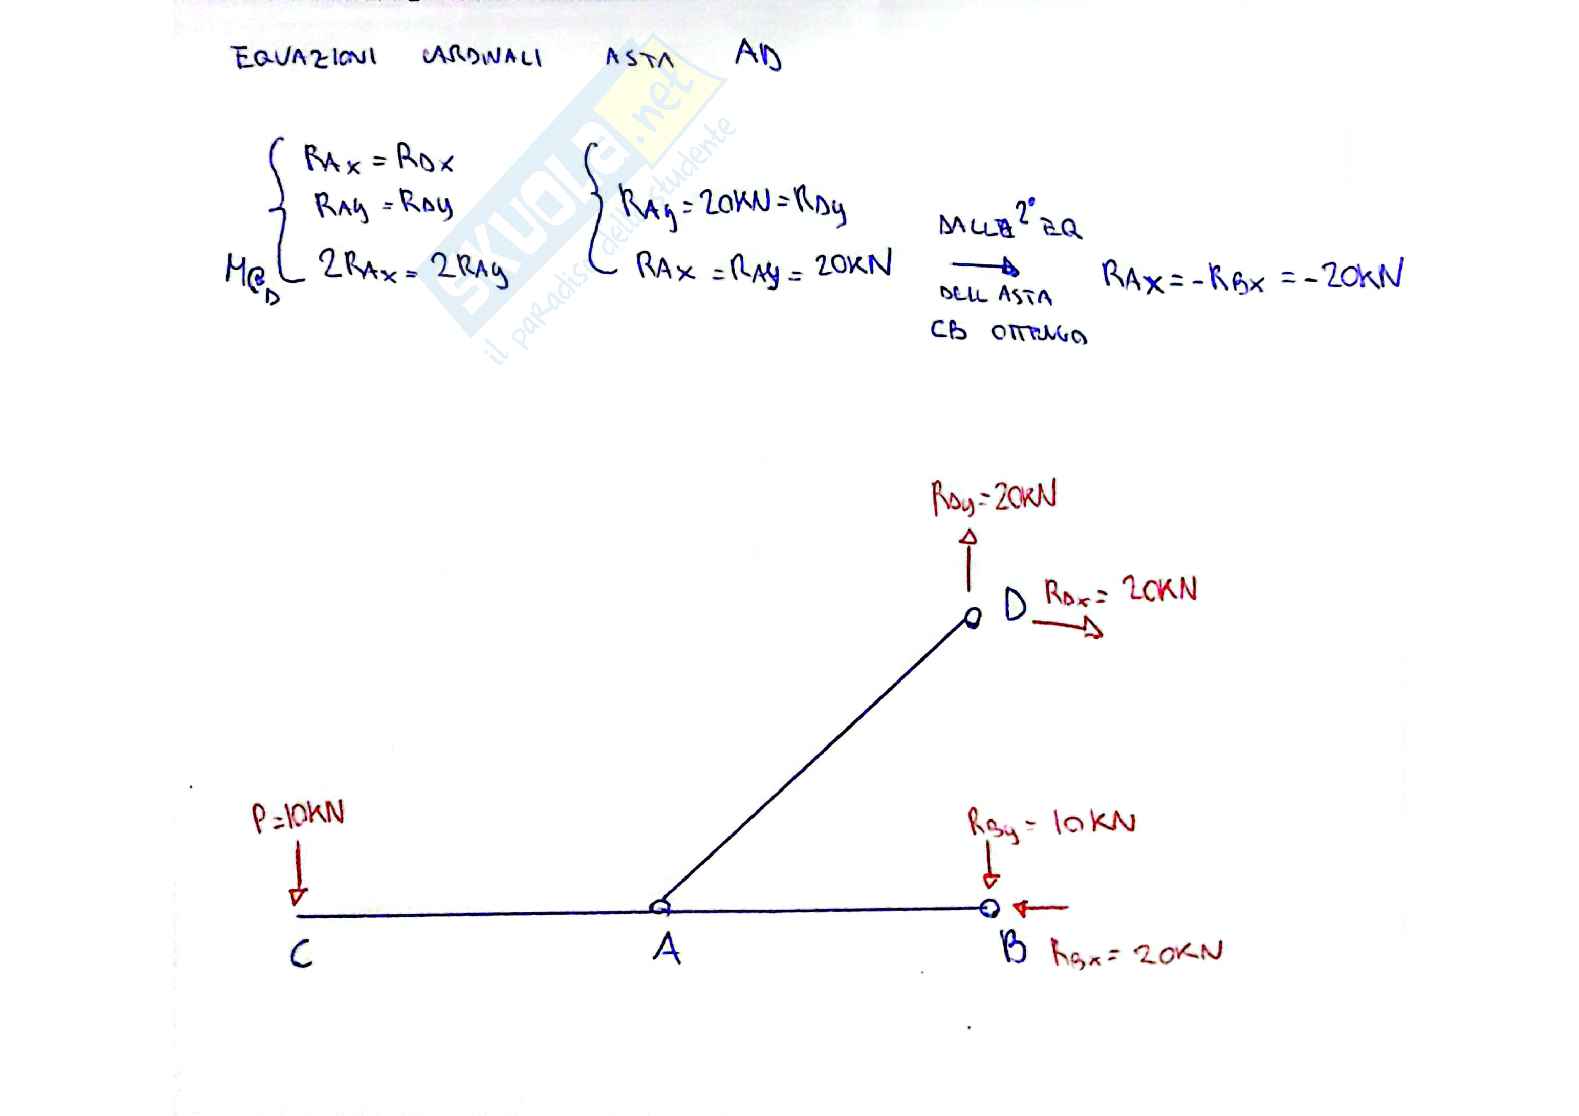 EQUAZIONI CARDINALI ASTA AD
RAx = RDx
RAy = RDy
M@D 2RAx = 2RAy
RAy = 20KN = RDy
RAx = RAy = 20KN
DALLA 2° EQ
DELL ASTA
CB OTTENGO
RAx = -RBx = -20KN
SKUOLA.net
il paradiso dello studente
RDy = 20KN
D RDx = 20KN
P=10KN
RBy = 10KN
C A B RBx = 20KN